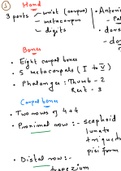 ① Hand
3 parts → wrist (carpus)
→ metacarpus
→ digits
• Anton
- Pa
• do
- do
Bones
• Eight carpal bones
• 5 metacarpals (I to V)
• Phalanges: Thumb - 2
Rest - 3
Carpal bones
• Two rows of 4+4
• Proximal row :- scaphoid
lunate
triquetral
pisiform
• Distal row :-
trapezium